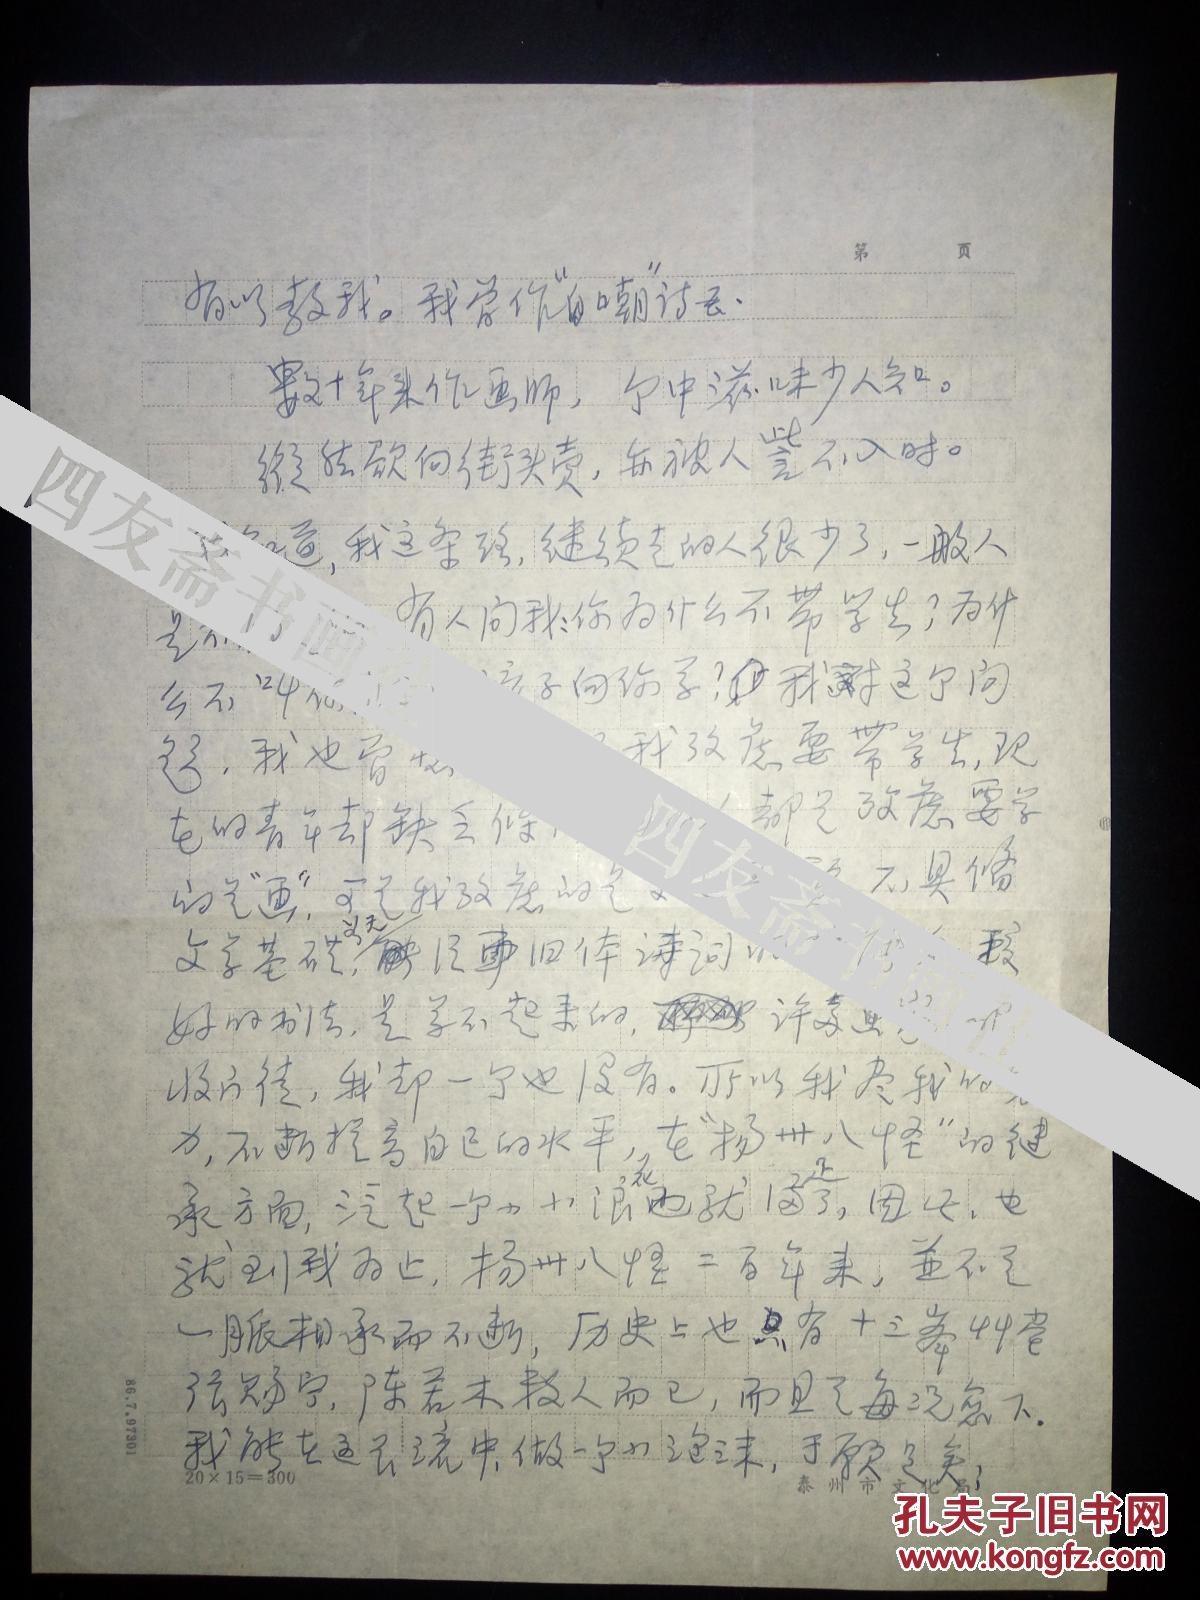 第 页
有以教我。我曾作"自嘲"诗云.
数十年来作画师，个中滋味少人知。
纵然欲向街头卖，亦被人訾不入时。
道，我这条路，继续走的人很少了，一般人
是 有人问我：你为什么不带学生？为什
么不叫你 孩子向你学？我对这个问
题，我也曾 我考虑要带学生，现
在的青年却缺乏 都是考虑要学
的是"画"，可是我考虑的是 不具备
文学基础， 旧体诗词 较
好的书法，是学不起来的， 许多画
收门徒，我却一个也没有。所以我尽我的
力，不断提高自己的水平，在"扬州八怪"的继
承方面，泛起一个小小浪花也就满足了，因此，也
就到我为止，扬州八怪二百年来，並不是
一脈相承而不断，历史上也只有十三峯草堂
张赐宁，陈若木数人而已，而且是每况愈下.
我能在这长流中，做一个小泡沫，于愿足矣；
86.7.97301
20×15=300
泰州市文化局
四友斋书画
四友斋书
孔夫子旧书网
www.kongfz.com